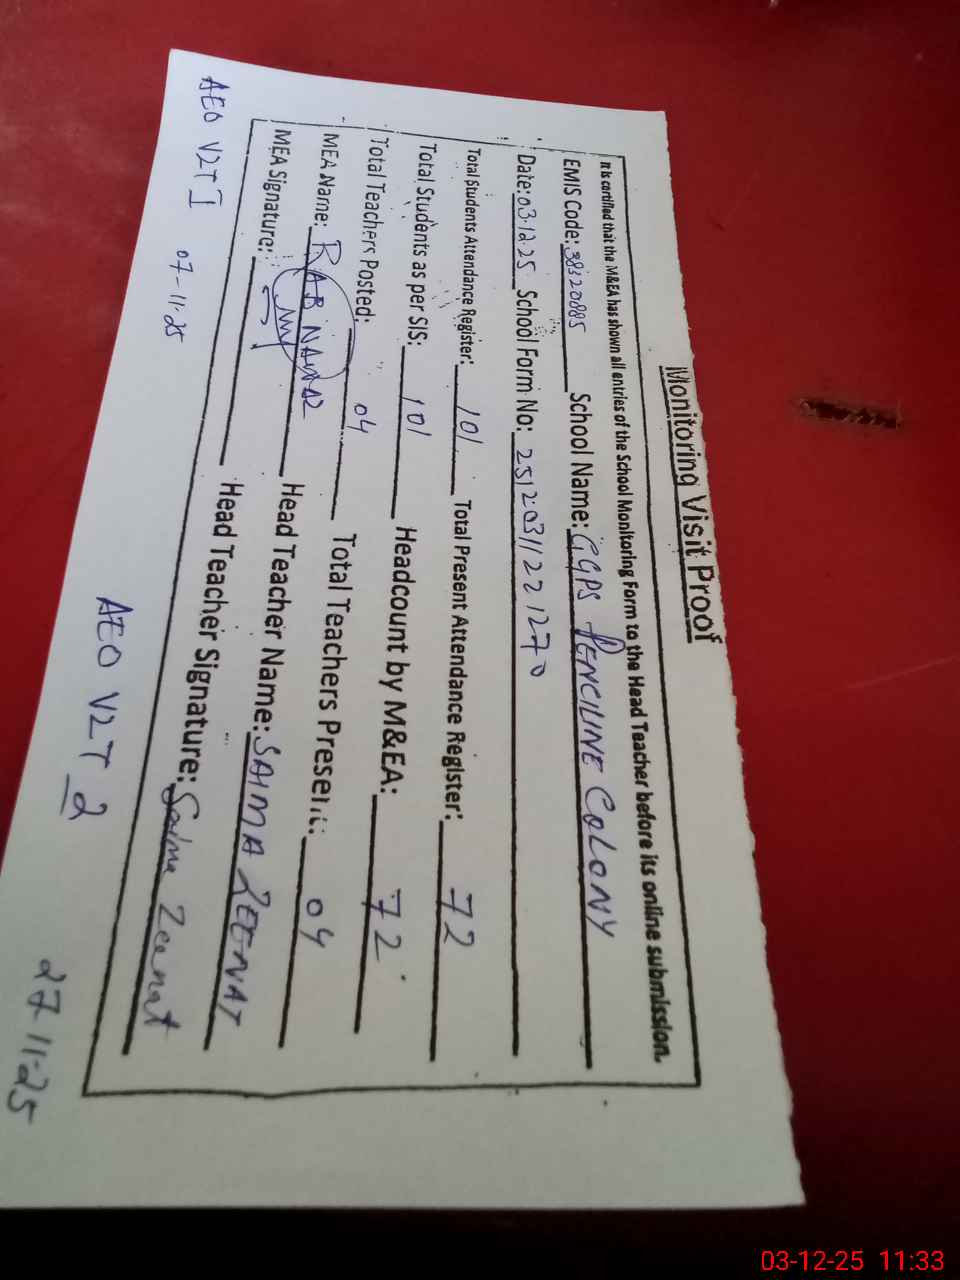 Monitoring Visit Proof
It is certified that the M&EA has shown all entries of the School Monitoring Form to the Head Teacher before its online submission.
EMIS Code: 38320885 School Name: GGPS PENCILINE COLONY
Date: 03.12.25 School Form No: 25120311221270
Total Students Attendance Register: 101 Total Present Attendance Register: 72
Total Students as per SIS: 101 Headcount by M&EA: 72
Total Teachers Posted: 04 Total Teachers Present: 04
MEA Name: RAB NAWAZ Head Teacher Name: SAIMA ZEENAT
MEA Signature: Head Teacher Signature: Saima Zeenat
AEO V2T 1 07-11-25
AEO V2T 2 27-11-25
03-12-25 11:33